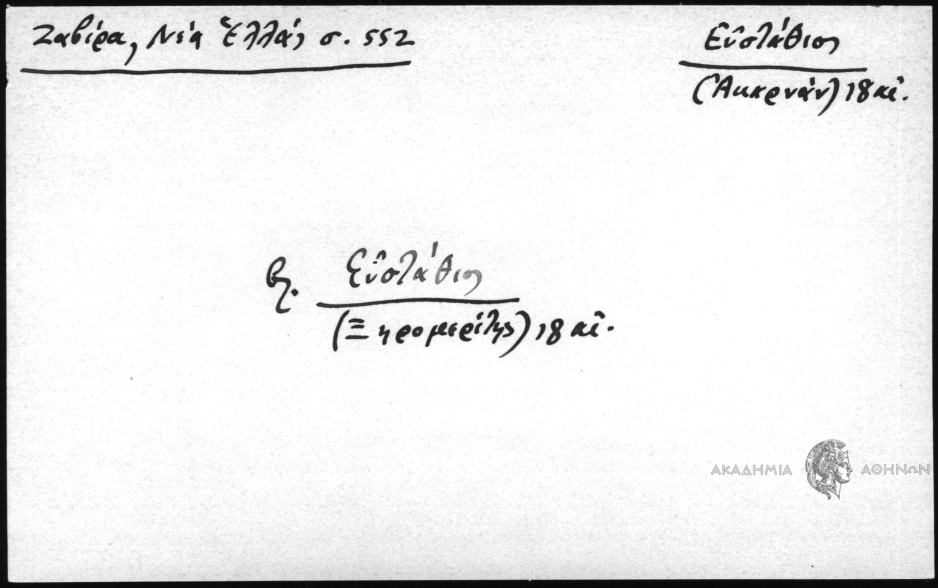 Ζαβίρα, Νέα Ἑλλάς σ. 552
Εὐστάθιος
(Ἀκαρνάν) 18 αἰ.
βλ. Εὐστάθιος
(Ξηρομερίτης) 18 αἰ.
ΑΚΑΔΗΜΙΑ ΑΘΗΝΩΝ